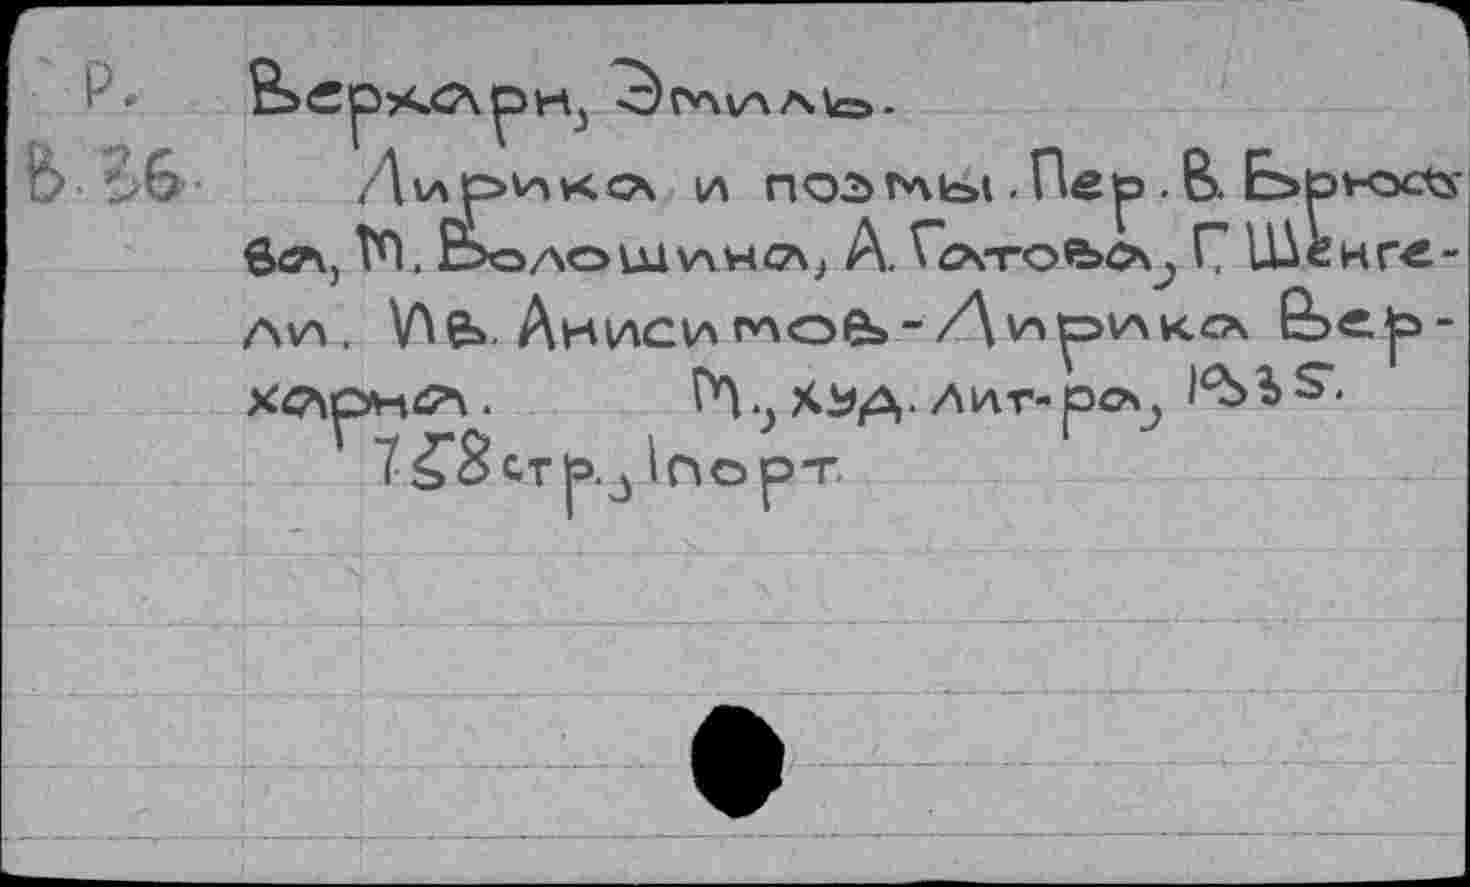 Р. Верхарн, Эмиль.
В.36 Лирика и поэмы. Пер. В. Брюсо-
ва, М. Волошина, А. Гатова, Г. Шенге-
ли. Ив. Анисимов - Лирика Вер-
харна. М., худ. лит-ра, 1935.
758 стр., 1 порт.